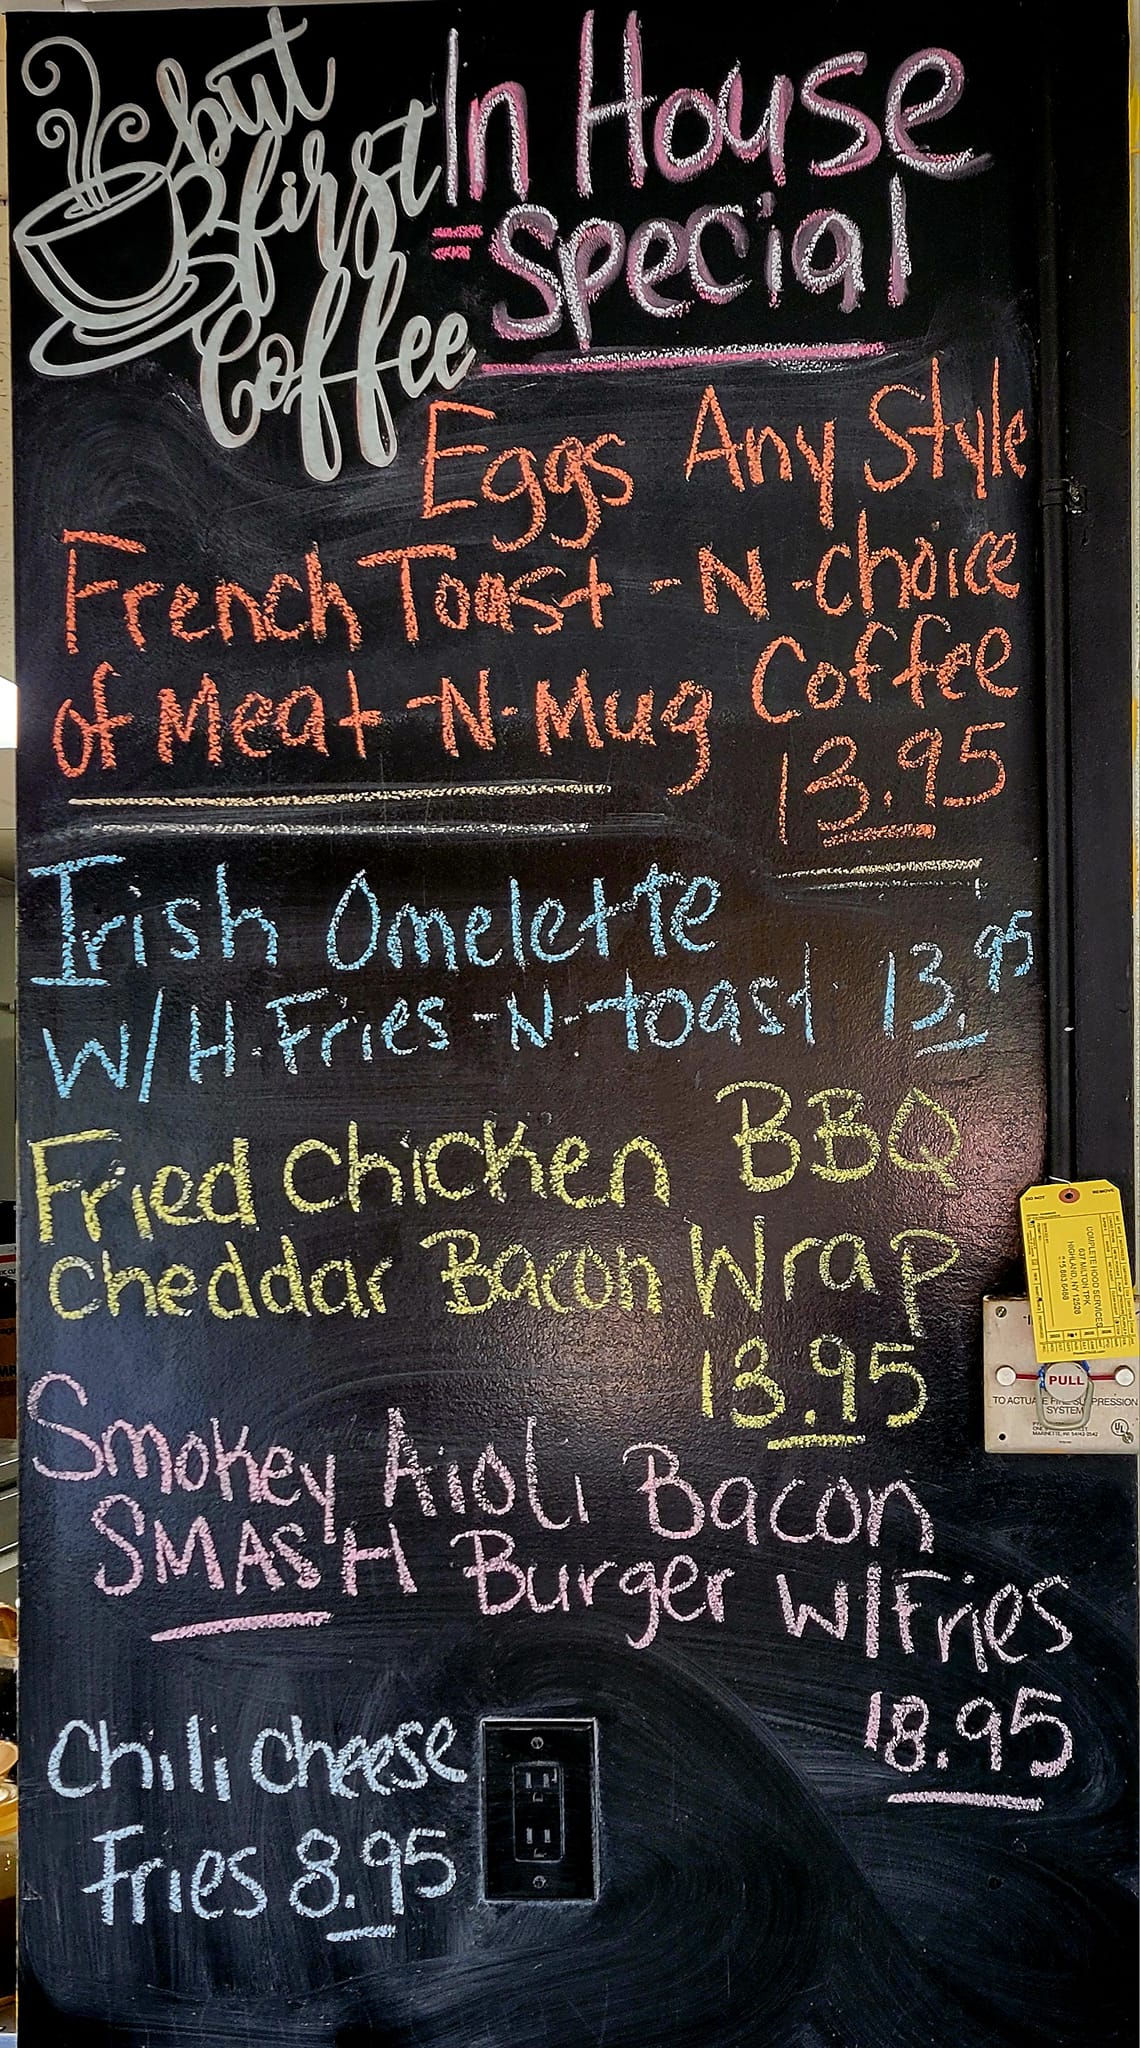 but
first
Coffee
In House
=Special
Eggs Any Style
French Toast-N-choice
of Meat-N-Mug Coffee
13.95
Irish Omelette
W/H.Fries-N-toast 13.95
Fried chicken BBQ
cheddar Bacon Wrap
13.95
Smokey Aioli Bacon
SMASH Burger w/Fries
18.95
Chili cheese
Fries 8.95
DO NOT REMOVE
COMPLETE HOOD SERVICES
HIGHLAND, NY 12528
PULL
TO ACTUATE FIRE SUPPRESSION
SYSTEM